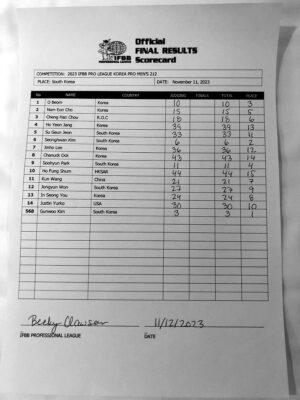 IFBB
PROFESSIONAL LEAGUE
Official
FINAL RESULTS
Scorecard
COMPETITION: 2023 IFBB PRO LEAGUE KOREA PRO MEN'S 212
PLACE: South Korea DATE: November 11, 2023
No NAME COUNTRY JUDGING FINALS TOTAL PLACE
1 O Beom Korea 10 10 3
2 Nam Eun Cho Korea 15 15 5
3 Cheng Han Chou R.O.C 18 18 6
4 Ho Yeon Jang Korea 39 39 13
5 Su Geun Jeon South Korea 33 33 11
6 Seonghwan Kim South Korea 6 6 2
7 Jinho Lee Korea 36 36 12
8 Chansuck Ock Korea 43 43 14
9 Soohyun Park South Korea 11 11 4
10 Ho Fung Shum HKSAR 44 44 15
11 Kun Wang China 21 21 7
12 Jongyun Won South Korea 27 27 9
13 In Seong You Korea 24 24 8
14 Justin Yurko USA 30 30 10
568 Gunwoo Kim South Korea 3 3 1
Becky Clawson 11/12/2023
IFBB PROFESSIONAL LEAGUE DATE